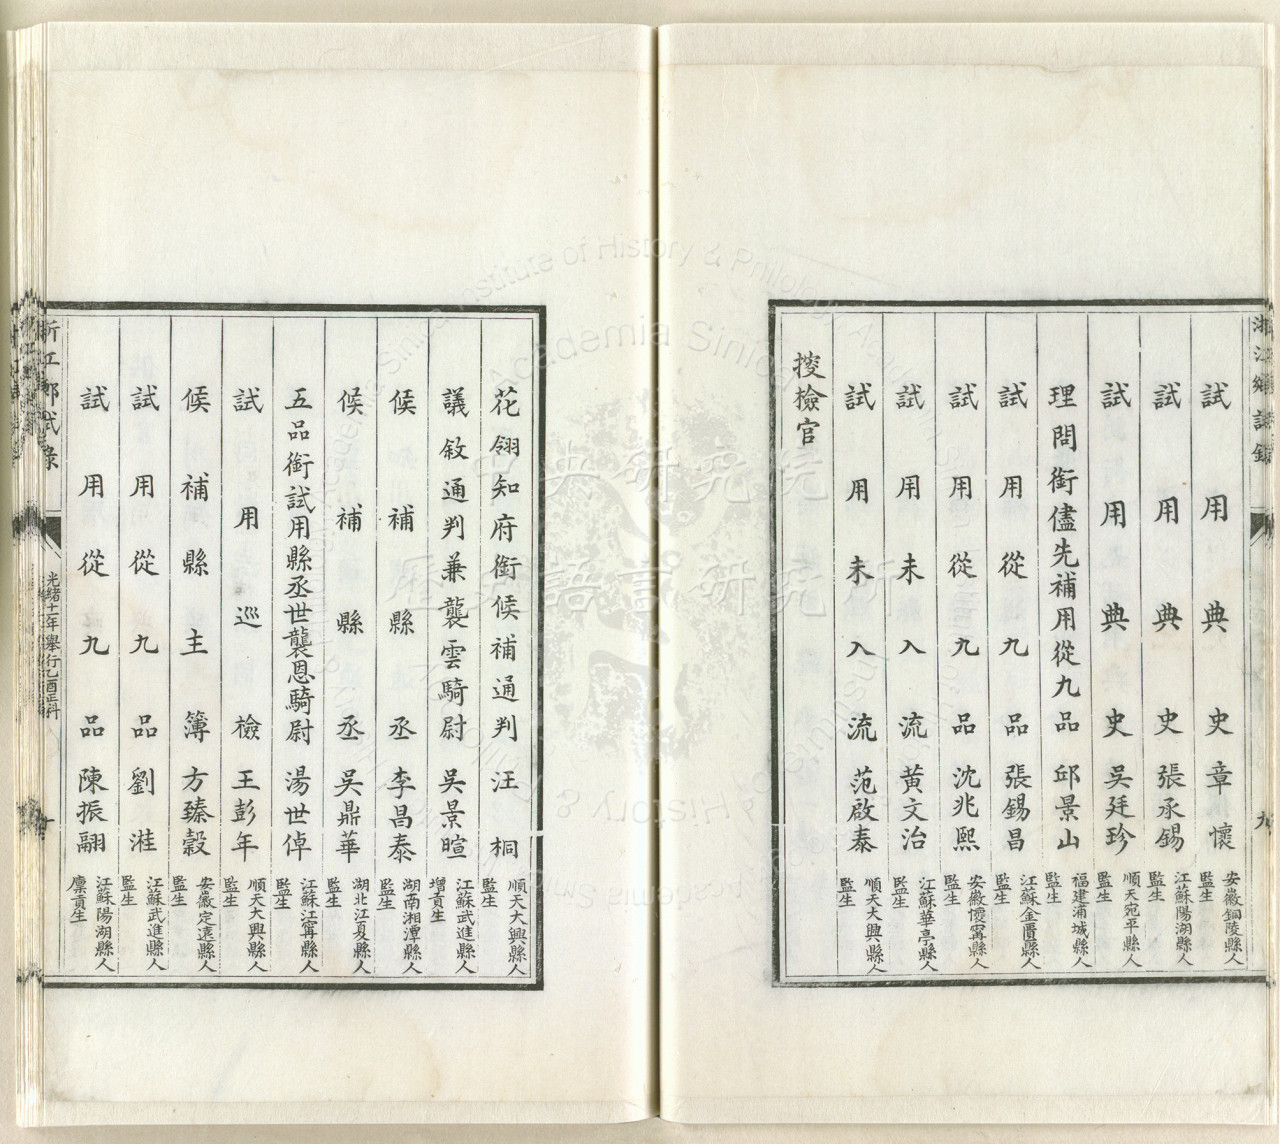 浙江鄉試錄
九
試用典史章懷 安徽銅陵縣人監生
試用典史張承錫 江蘇陽湖縣人監生
試用典史吳廷珍 順天宛平縣人監生
理問銜儘先補用從九品邱景山 福建浦城縣人監生
試用從九品張錫昌 江蘇金匱縣人監生
試用從九品沈兆熙 安徽懷甯縣人監生
試用未入流黃文治 江蘇華亭縣人監生
試用未入流范啟泰 順天大興縣人監生
搜檢官
花翎知府銜候補通判汪桐 順天大興縣人監生
議敘通判兼襲雲騎尉吳景暄 江蘇武進縣人增貢生
候補縣丞李昌泰 湖南湘潭縣人監生
候補縣丞吳鼎華 湖北江夏縣人監生
五品銜試用縣丞世襲恩騎尉湯世倬 江蘇江甯縣人監生
試用巡檢王彭年 順天大興縣人監生
候補縣主簿方臻穀 安徽定遠縣人監生
試用從九品劉溎 江蘇武進縣人監生
試用從九品陳振翮 江蘇陽湖縣人廩貢生
浙江鄉試錄
光緒十一年舉行乙酉正科
十
中央研究院
歷史語言研究所
Institute of History & Philology
Academia Sinica